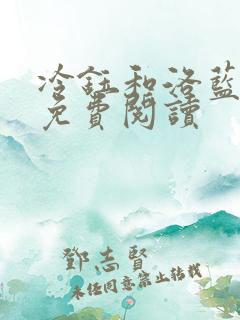 冷鈺和洛藍
免費閱讀
鄧志賢
未經同意禁止轉載